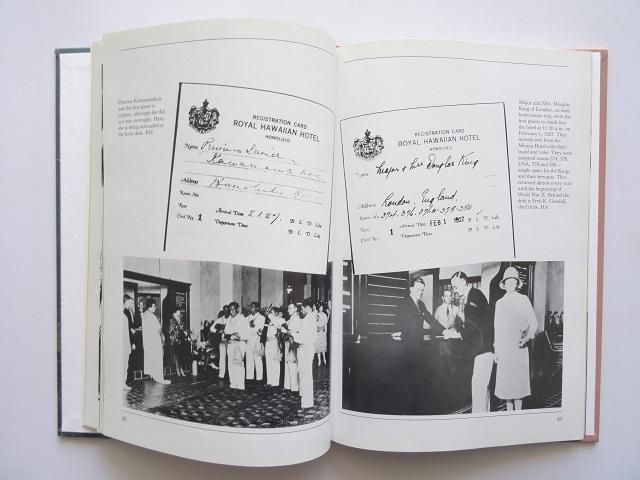 Princess Kawananakoa
was the first guest to
register, although she did
not stay overnight. Here,
she is being serenaded at
the front desk. RH
REGISTRATION CARD
ROYAL HAWAIIAN HOTEL
HONOLULU
Name
Address
Room No.
Rate Arrival Time
Card No 1 Departure Time B L D Lds
48
REGISTRATION CARD
ROYAL HAWAIIAN HOTEL
HONOLULU
Name Major & Mrs Douglas King
Address London, England.
Room No. 374-376-376A-378-380
Rate Arrival Time FEB 1 1927 B L D Lds
Card No 1 Departure Time
Major and Mrs. Douglas
King of London, on their
honeymoon trip, were the
first guests to check into
the hotel at 11:30 a.m. on
February 1, 1927. They
moved over from the
Moana Hotel with their
maid and valet. They were
assigned rooms 374, 376,
376A, 378 and 380—
ample space for the Kings
and their servants. They
returned almost every year
until the beginning of
World War II. Behind the
desk is Fred R. Goodall,
chief clerk. HA
49